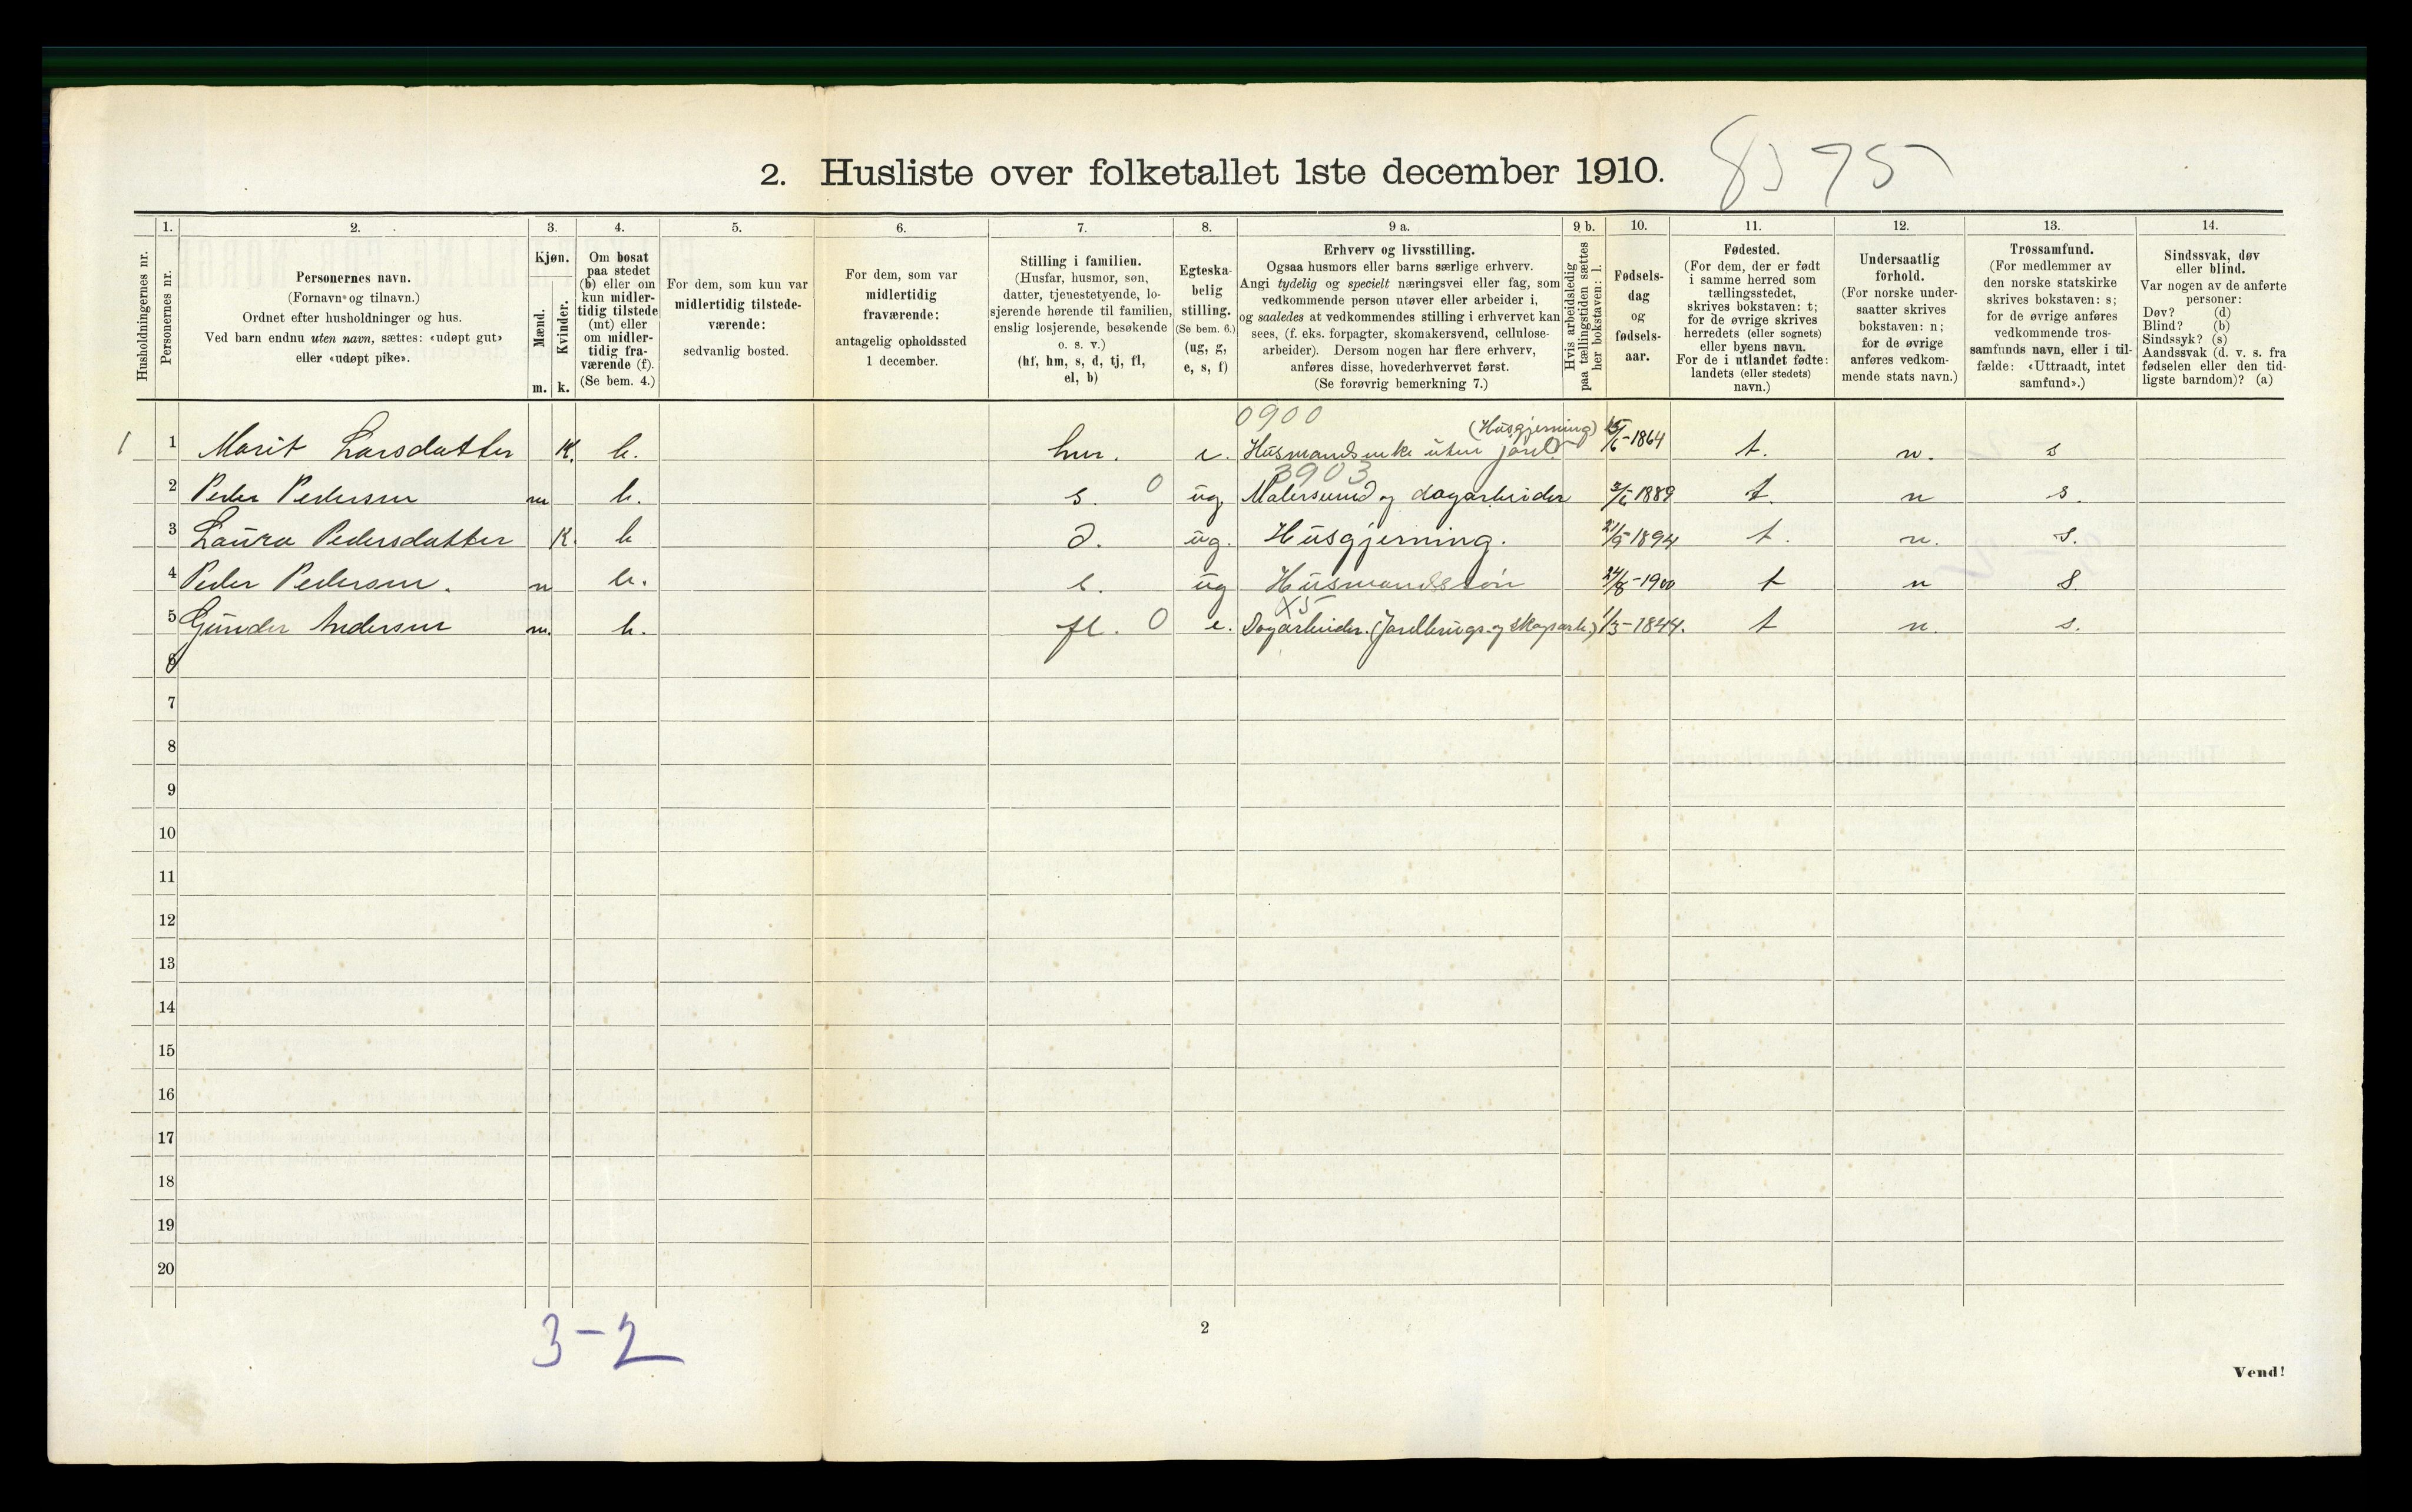 2. Husliste over folketallet 1ste december 1910.
1.
2.
3.
4.
5.
6.
7.
8.
9 a.
9 b.
10.
11.
12.
13.
14.
Husholdningernes nr.
Personernes nr.
Personernes navn.
(Fornavn og tilnavn.)
Ordnet efter husholdninger og hus.
Ved barn endnu uten navn, sættes: «udøpt gut»
eller «udøpt pike».
Kjøn.
Mænd.
m.
Kvinder.
k.
Om bosat
paa stedet
(b) eller om
kun midler-
tidig tilstede
(mt) eller
om midler-
tidig fra-
værende (f).
(Se bem. 4.)
For dem, som kun var
midlertidig tilstede-
værende:
sedvanlig bosted.
For dem, som var
midlertidig
fraværende:
antagelig opholdssted
1 december.
Stilling i familien.
(Husfar, husmor, søn,
datter, tjenestetyende, lo-
sjerende hørende til familien,
enslig losjerende, besøkende
o. s. v.)
(hf, hm, s, d, tj, fl,
el, b)
Egteska-
belig
stilling.
(Se bem. 6.)
(ug, g,
e, s, f)
Erhverv og livsstilling.
Ogsaa husmors eller barns særlige erhverv.
Angi tydelig og specielt næringsvei eller fag, som
vedkommende person utøver eller arbeider i,
og saaledes at vedkommendes stilling i erhvervet kan
sees, (f. eks. forpagter, skomakersvend, cellulose-
arbeider). Dersom nogen har flere erhverv,
anføres disse, hovederhvervet først.
(Se forøvrig bemerkning 7.)
Hvis arbeidsledig
paa tællingstiden sættes
her bokstaven: l.
Fødsels-
dag
og
fødsels-
aar.
Fødested.
(For dem, der er født
i samme herred som
tællingsstedet,
skrives bokstaven: t;
for de øvrige skrives
herredets (eller sognets)
eller byens navn.
For de i utlandet fødte:
landets (eller stedets)
navn.)
Undersaatlig
forhold.
(For norske under-
saatter skrives
bokstaven: n;
for de øvrige
anføres vedkom-
mende stats navn.)
Trossamfund.
(For medlemmer av
den norske statskirke
skrives bokstaven: s;
for de øvrige anføres
vedkommende tros-
samfunds navn, eller i til-
fælde: «Uttraadt, intet
samfund».)
Sindssvak, døv
eller blind.
Var nogen av de anførte
personer:
Døv? (d)
Blind? (b)
Sindssyk? (s)
Aandssvak (d. v. s. fra
fødselen eller den tid-
ligste barndom)? (a)
0900
1 1 Marit Larsdatter K. b. hm. e. Husmandsenke uten jord (Husgjerning) 1864 t. n. s
3903
2 Peder Pedersen m b. s. 0 ug Malersvend og dagarbeider 1889 t. n s.
3 Laura Pedersdatter K. b d. ug. Husgjerning. 21/9-1894 t. n. s.
4 Peder Pedersen. m b. s. ug Husmandssøn 24/8-1900 t n s.
5 Gunder Andersen m. b. fl. 0 e. Dagarbeider. (Jordbrugs- og skogsarb.) 1/3-1844. t n. s.
6
7
8
9
10
11
12
13
14
15
16
17
18
19
20
3-2
2
Vend!